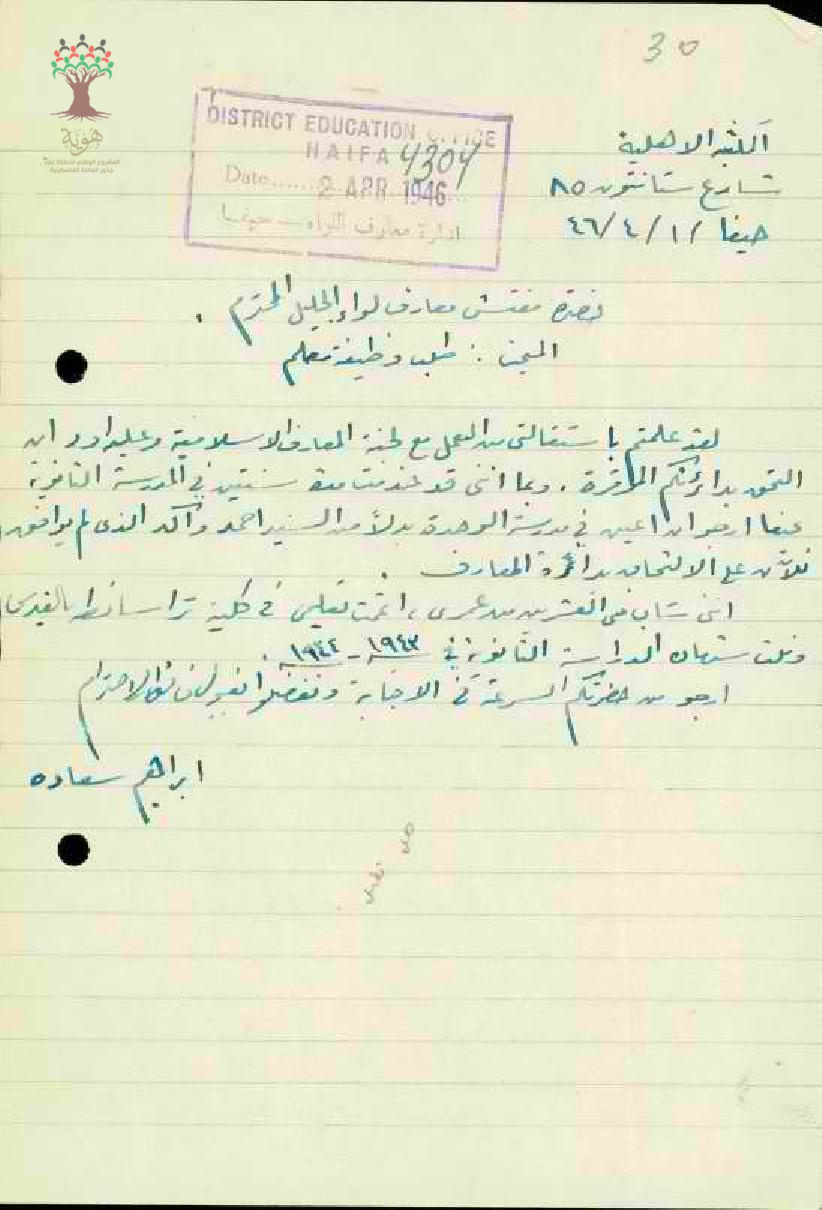 30
هوية
DISTRICT EDUCATION OFFICE
HAIFA 4304
Date...... 2 APR. 1946...
ادارة معارف اللواء — حيفا
المكتبة الاهلية
شارع ستانتون ٨٥
حيفا ١/٤/٤٦
حضرة مفتش معارف لواء الجليل المحترم .
المبحث : طلب وظيفة معلم
لقد علمتم باستقالتي من العمل مع لجنة المعارف الاسلامية وعليه اود ان
التحق بدائرتكم الموقرة . وبما انني قد خدمت مدة سنتين في المدرسة الثانوية
بحيفا ارجو ان اعين في مدرسة الوحدة بدلاً من السيد احمد الذي لم يوافق
للآن على الالتحاق بدائرة المعارف .
انني شاب في العشرين من عمري ، اتممت تعليمي في كلية تراسانطة بالقدس
ونلت شهادة الدراسة الثانوية في سنة ١٩٤٣ – ١٩٤٤ .
ارجو من حضرتكم السرعة في الاجابة وتفضلوا بقبول فائق الاحترام
ابراهيم سعاده